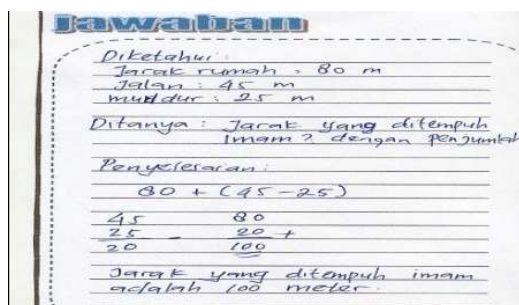 Jawaban
Diketahui :
Jarak rumah : 80 m
Jalan : 45 m
mundur : 25 m
Ditanya : Jarak yang ditempuh
Imam ? dengan penjumlah
Penyelesaian :
80 + (45 - 25)
45 80
25 - 20 +
20 100
Jarak yang ditempuh imam
adalah 100 meter.